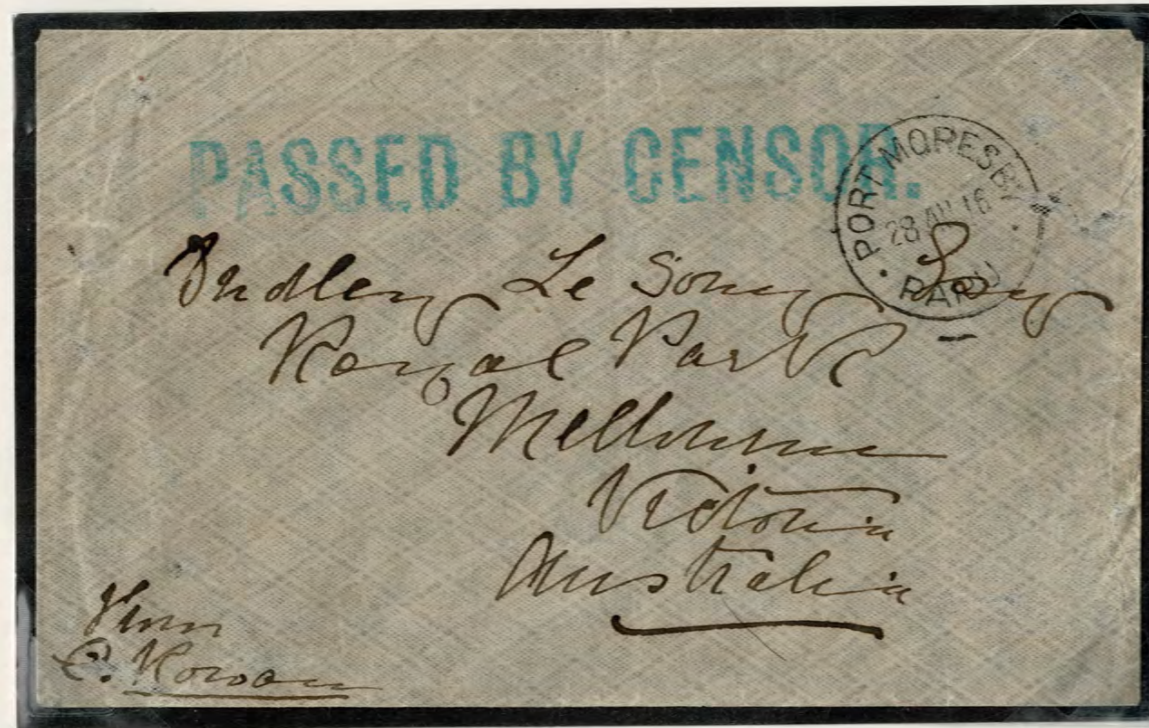 PASSED BY CENSOR.
PORT MORESBY
28 AU 16
PAPUA
Dudley Le Souef Esq
Royal Park
Melbourne
Victoria
Australia
From
E. Rowan